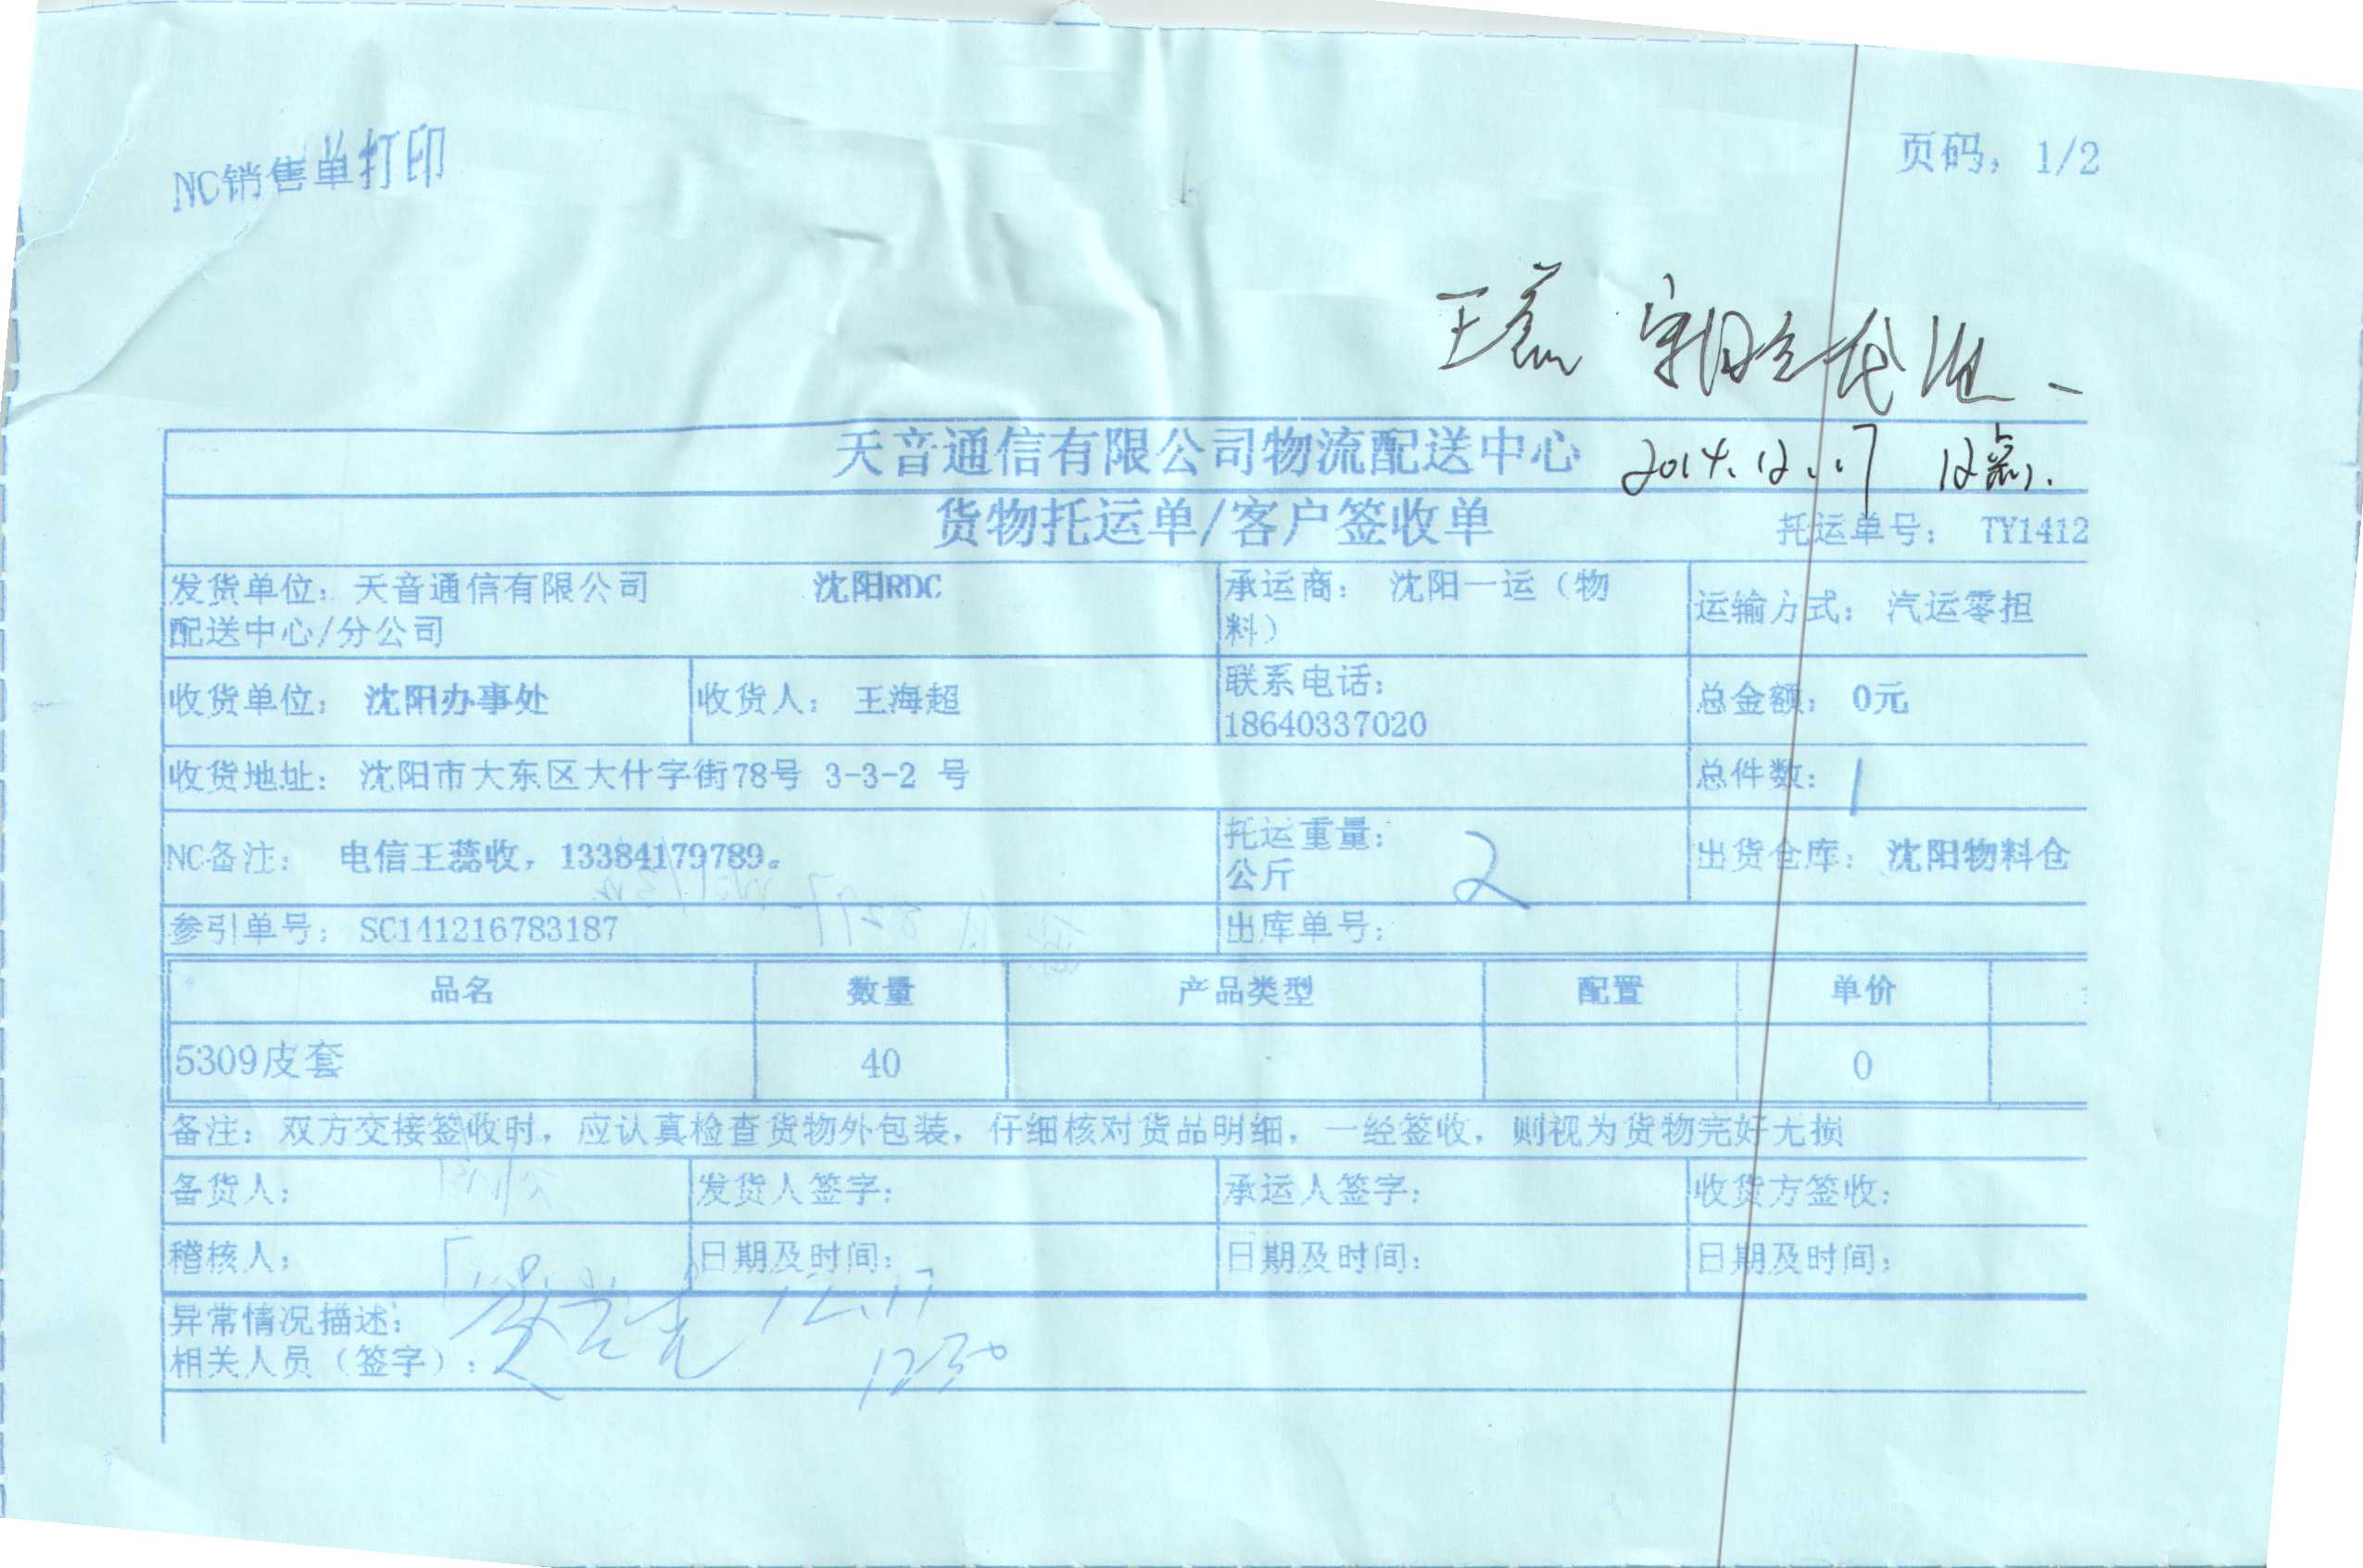 NC销售单打印
页码，1/2
王蕊
天音通信有限公司物流配送中心
2014.12.17 12点
货物托运单/客户签收单
托运单号： TY1412
发货单位：天音通信有限公司 沈阳RDC
配送中心/分公司
承运商： 沈阳一运（物
料）
运输方式： 汽运零担
收货单位： 沈阳办事处
收货人： 王海超
联系电话：
18640337020
总金额： 0元
收货地址： 沈阳市大东区大什字街78号 3-3-2 号
总件数： 1
NC备注： 电信王蕊收，13384179789。
托运重量：
公斤 2
出货仓库： 沈阳物料仓
参引单号： SC141216783187
出库单号：
品名 数量 产品类型 配置 单价
5309皮套 40 0
备注：双方交接签收时，应认真检查货物外包装，仔细核对货品明细，一经签收，则视为货物完好无损
备货人： 发货人签字： 承运人签字： 收货方签收：
稽核人： 日期及时间： 日期及时间： 日期及时间：
异常情况描述： 12.17
相关人员（签字）： 1230